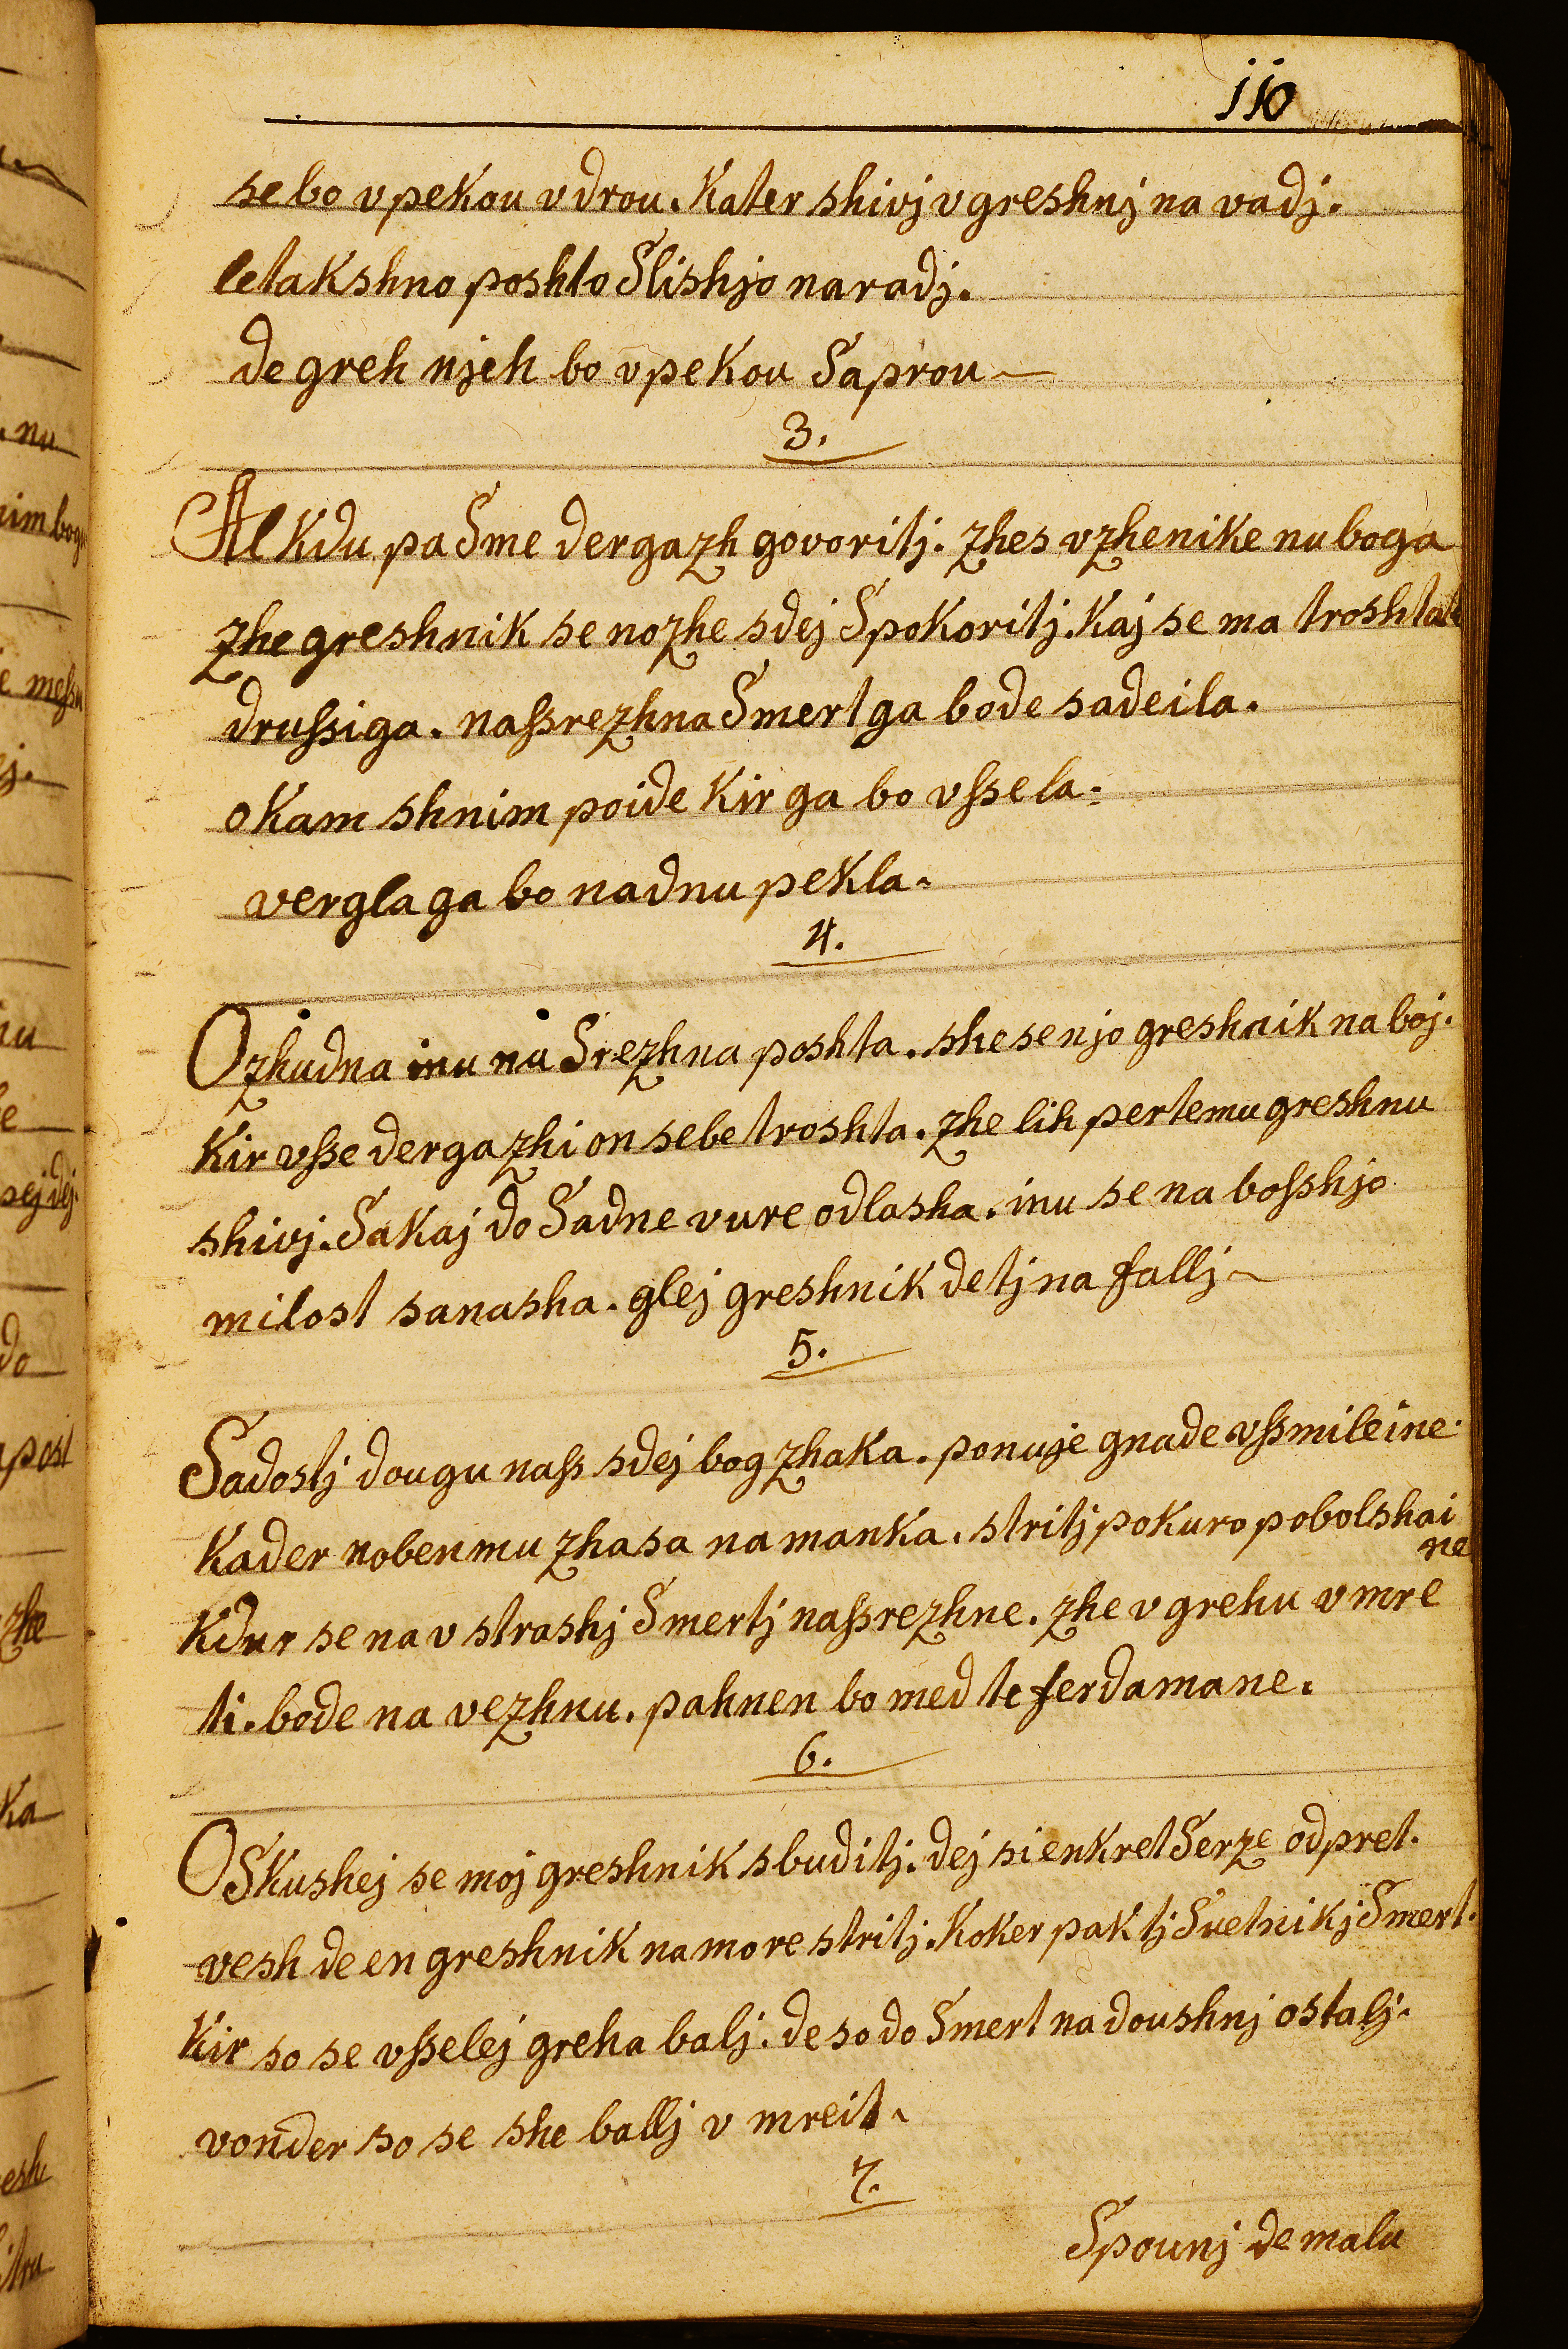 110
se bo v pekou vdrou. Kater shivj v greshnj na vadj.
letakshno poshto Slishjo naradj.
de greh njeh bo v pekou Saprou
3.
Al Kdu pa Sme dergazh govoritj. zhes vzhenike nu boga
zhe greshnik se nozhe sdej Spokoritj. Kaj se ma troshtat
drussiga. nassrezhna Smert ga bode sadeila.
o Kam shnim poide Kir ga bo vssela.
vergla ga bo nadnu pekla.
4.
O zhudna inu nu Srezhna poshta. she se njo greshnik na boj.
Kir vsse dergazhi on sebe troshta. zhe lih pertemu greshnu
shivj. Sakaj do Sadne vure odlasha. inu se na bosshjo
milost sanasha. glej greshnik de tj na fallj
5.
Sadostj dougu nass sdej bog zhaka. ponuje gnade vssmileine.
Kader nobenmu zhasa na manka. stritj pokuro pobolshai
ne
Kdur se na v strashj Smertj nassrezhne. zhe v grehu v mre
ti. bode na vezhnu. pahnen bo med te ferdamane.
6.
O Skushej se moj greshnik sbuditj. dej si enkret Serze odpret.
vesh de en greshnik na more stritj. Koker pak tj Svetnikj Smert.
Kir so se vsselej greha balj. de so do Smert na doushnj ostalj.
vonder so se she ballj v mreit.
7.
Spounj de malu